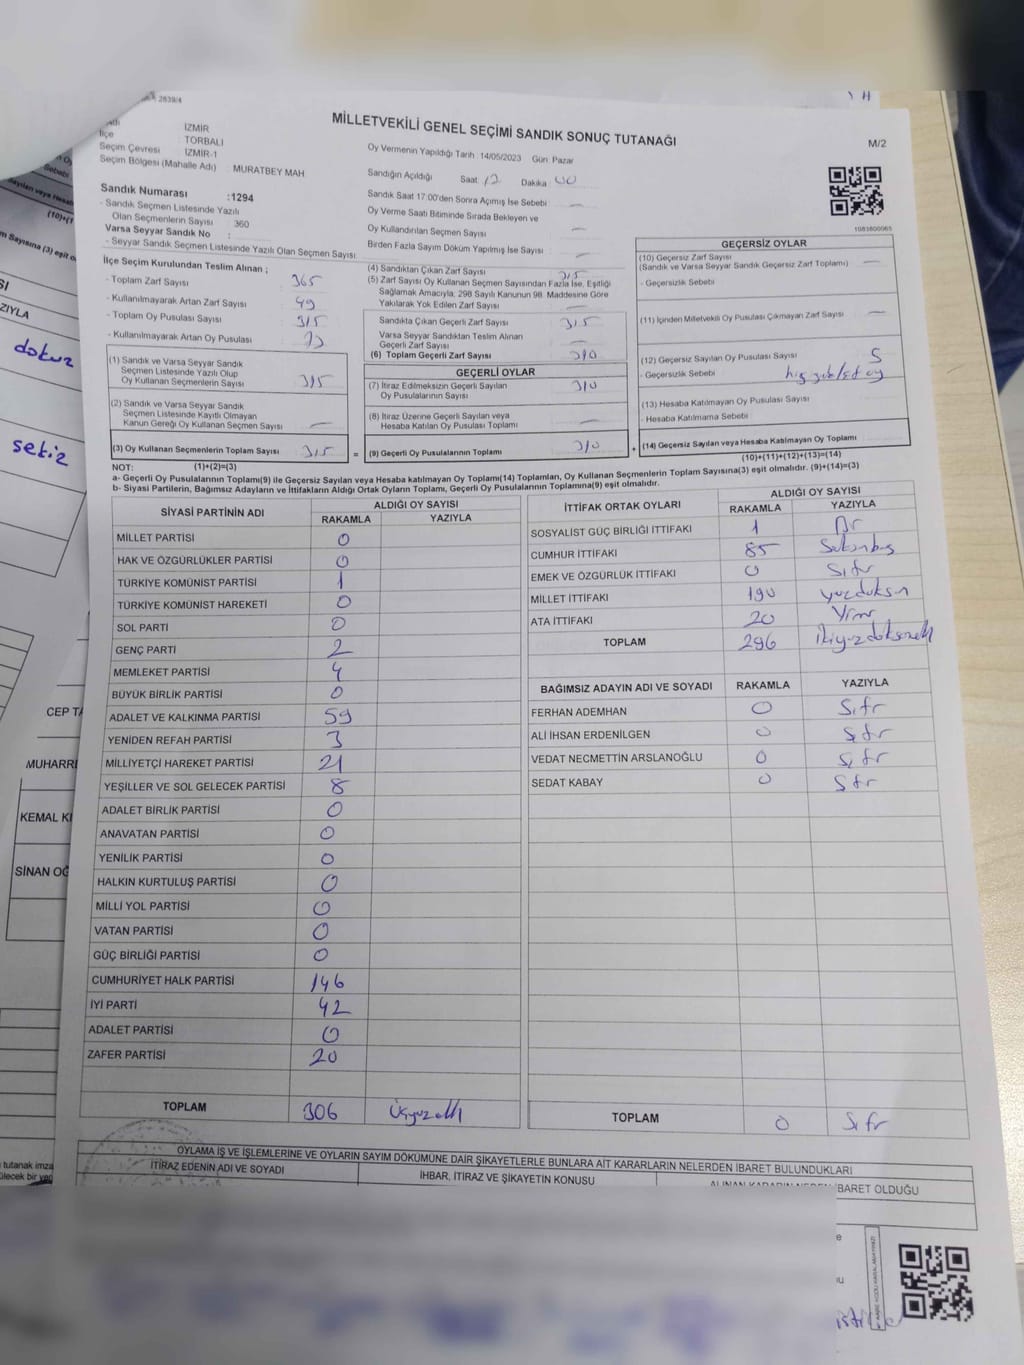 2839/4
MİLLETVEKİLİ GENEL SEÇİMİ SANDIK SONUÇ TUTANAĞI
M/2
İZMİR
İlçe TORBALI
Seçim Çevresi İZMİR-1
Seçim Bölgesi (Mahalle Adı) MURATBEY MAH
Oy Vermenin Yapıldığı Tarih :14/05/2023 Gün: Pazar
Sandığın Açıldığı Saat Dakika 00
Sandık Numarası :1294
- Sandık Seçmen Listesinde Yazılı
Olan Seçmenlerin Sayısı 360
Varsa Seyyar Sandık No :
- Seyyar Sandık Seçmen Listesinde Yazılı Olan Seçmen Sayısı
Sandık Saat 17:00'den Sonra Açımış İse Sebebi —
Oy Verme Saati Bitiminde Sırada Bekleyen ve
Oy Kullandırılan Seçmen Sayısı —
Birden Fazla Sayım Döküm Yapılmış İse Sayısı —
1083800065
İlçe Seçim Kurulundan Teslim Alınan ;
- Toplam Zarf Sayısı 365
- Kullanılmayarak Artan Zarf Sayısı 49
- Toplam Oy Pusulası Sayısı 315
- Kullanılmayarak Artan Oy Pusulası
(1) Sandık ve Varsa Seyyar Sandık
Seçmen Listesinde Yazılı Olup
Oy Kullanan Seçmenlerin Sayısı 315
(2) Sandık ve Varsa Seyyar Sandık
Seçmen Listesinde Kayıtlı Olmayan
Kanun Gereği Oy Kullanan Seçmen Sayısı —
(3) Oy Kullanan Seçmenlerin Toplam Sayısı 315
(4) Sandıktan Çıkan Zarf Sayısı 315
(5) Zarf Sayısı Oy Kullanan Seçmen Sayısından Fazla İse, Eşitliği
Sağlamak Amacıyla, 298 Sayılı Kanunun 98. Maddesine Göre
Yakılarak Yok Edilen Zarf Sayısı —
Sandıkta Çıkan Geçerli Zarf Sayısı 315
Varsa Seyyar Sandıktan Teslim Alınan
Geçerli Zarf Sayısı —
(6) Toplam Geçerli Zarf Sayısı 310
GEÇERLİ OYLAR
(7) İtiraz Edilmeksizin Geçerli Sayılan
Oy Pusulalarının Sayısı 310
(8) İtiraz Üzerine Geçerli Sayılan veya
Hesaba Katılan Oy Pusulası Toplamı —
= (9) Geçerli Oy Pusulalarının Toplamı 310
GEÇERSİZ OYLAR
(10) Geçersiz Zarf Sayısı
(Sandık ve Varsa Seyyar Sandık Geçersiz Zarf Toplamı) —
- Geçersizlik Sebebi
(11) İçinden Milletvekili Oy Pusulası Çıkmayan Zarf Sayısı —
(12) Geçersiz Sayılan Oy Pusulası Sayısı 5
- Geçersizlik Sebebi
(13) Hesaba Katılmayan Oy Pusulası Sayısı
- Hesaba Katılmama Sebebi
+ (14) Geçersiz Sayılan veya Hesaba Katılmayan Oy Toplamı
(10)+(11)+(12)+(13)=(14)
NOT: (1)+(2)=(3)
a- Geçerli Oy Pusulalarının Toplamı(9) ile Geçersiz Sayılan veya Hesaba katılmayan Oy Toplamı(14) Toplamları, Oy Kullanan Seçmenlerin Toplam Sayısına(3) eşit olmalıdır. (9)+(14)=(3)
b- Siyasi Partilerin, Bağımsız Adayların ve İttifakların Aldığı Ortak Oyların Toplamı, Geçerli Oy Pusulalarının Toplamına(9) eşit olmalıdır.
SİYASİ PARTİNİN ADI ALDIĞI OY SAYISI
RAKAMLA YAZIYLA
MİLLET PARTİSİ 0
HAK VE ÖZGÜRLÜKLER PARTİSİ 0
TÜRKİYE KOMÜNİST PARTİSİ 1
TÜRKİYE KOMÜNİST HAREKETİ 0
SOL PARTİ 0
GENÇ PARTİ 2
MEMLEKET PARTİSİ 4
BÜYÜK BİRLİK PARTİSİ 0
ADALET VE KALKINMA PARTİSİ 59
YENİDEN REFAH PARTİSİ 3
MİLLİYETÇİ HAREKET PARTİSİ 21
YEŞİLLER VE SOL GELECEK PARTİSİ 8
ADALET BİRLİK PARTİSİ 0
ANAVATAN PARTİSİ 0
YENİLİK PARTİSİ 0
HALKIN KURTULUŞ PARTİSİ 0
MİLLİ YOL PARTİSİ 0
VATAN PARTİSİ 0
GÜÇ BİRLİĞİ PARTİSİ 0
CUMHURİYET HALK PARTİSİ 146
İYİ PARTİ 42
ADALET PARTİSİ 0
ZAFER PARTİSİ 20
TOPLAM 306 Üçyüzaltı
İTTİFAK ORTAK OYLARI ALDIĞI OY SAYISI
RAKAMLA YAZIYLA
SOSYALİST GÜÇ BİRLİĞİ İTTİFAKI 1 Bir
CUMHUR İTTİFAKI 85 Seksenbeş
EMEK VE ÖZGÜRLÜK İTTİFAKI 0 Sıfır
MİLLET İTTİFAKI 190 yüzdoksan
ATA İTTİFAKI 20 Yirmi
TOPLAM 296 ikiyüzdoksanaltı
BAĞIMSIZ ADAYIN ADI VE SOYADI RAKAMLA YAZIYLA
FERHAN ADEMHAN 0 Sıfır
ALİ İHSAN ERDENİLGEN 0 Sıfır
VEDAT NECMETTİN ARSLANOĞLU 0 Sıfır
SEDAT KABAY 0 Sıfır
TOPLAM 0 Sıfır
OYLAMA İŞ VE İŞLEMLERİNE VE OYLARIN SAYIM DÖKÜMÜNE DAİR ŞİKAYETLERLE BUNLARA AİT KARARLARIN NELERDEN İBARET BULUNDUKLARI
İTİRAZ EDENİN ADI VE SOYADI
İHBAR, İTİRAZ VE ŞİKAYETİN KONUSU
İBARET OLDUĞU
YAZIYLA
dokuz
sekiz
CEP
KEMAL
SİNAN
tutanak